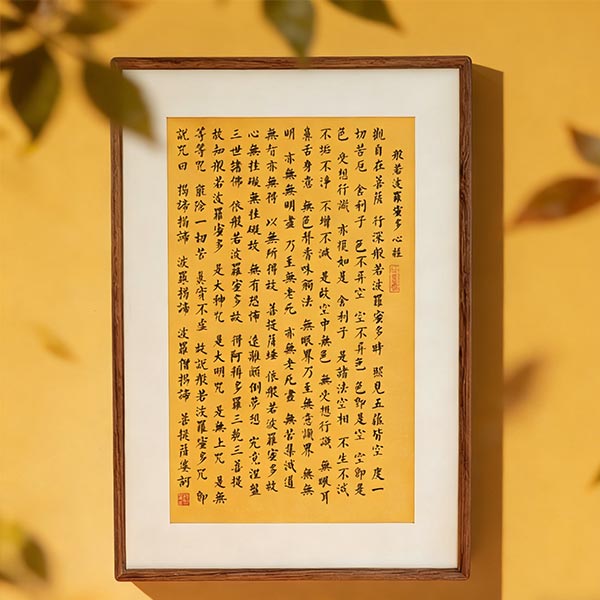 般若波羅蜜多心經
觀自在菩薩 行深般若波羅蜜多時 照見五蘊皆空 度一
切苦厄 舍利子 色不異空 空不異色 色即是空 空即是
色 受想行識 亦復如是 舍利子 是諸法空相 不生不滅
不垢不淨 不增不減 是故空中無色 無受想行識 無眼耳
鼻舌身意 無色聲香味觸法 無眼界乃至無意識界 無無
明 亦無無明盡 乃至無老死 亦無老死盡 無苦集滅道
無智亦無得 以無所得故 菩提薩埵 依般若波羅蜜多故
心無罣礙無罣礙故 無有恐怖 遠離顛倒夢想 究竟涅盤
三世諸佛 依般若波羅蜜多故 得阿耨多羅三藐三菩提
故知般若波羅蜜多 是大神咒 是大明咒 是無上咒 是無
等等咒 能除一切苦 真實不虛 故說般若波羅蜜多咒 即
說咒曰 揭諦揭諦 波羅揭諦 波羅僧揭諦 菩提薩婆訶